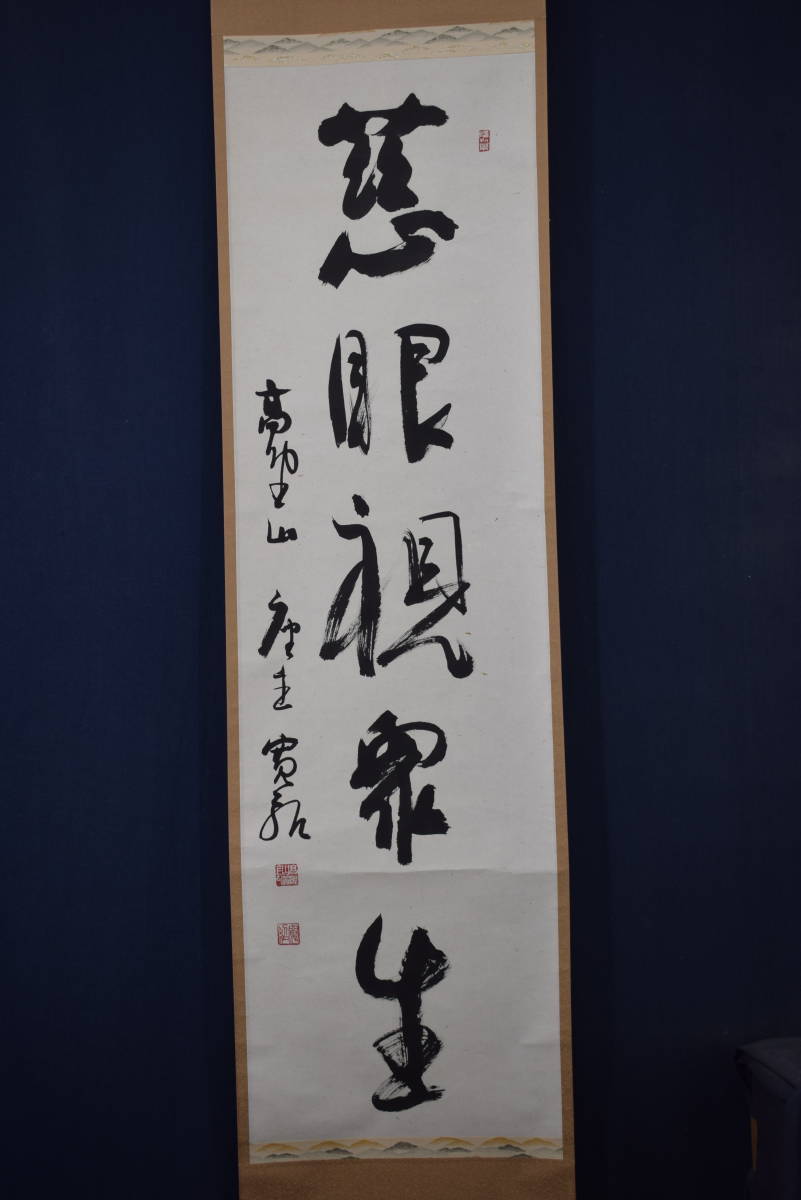 慈眼視衆生
高野山 座主 寛紹